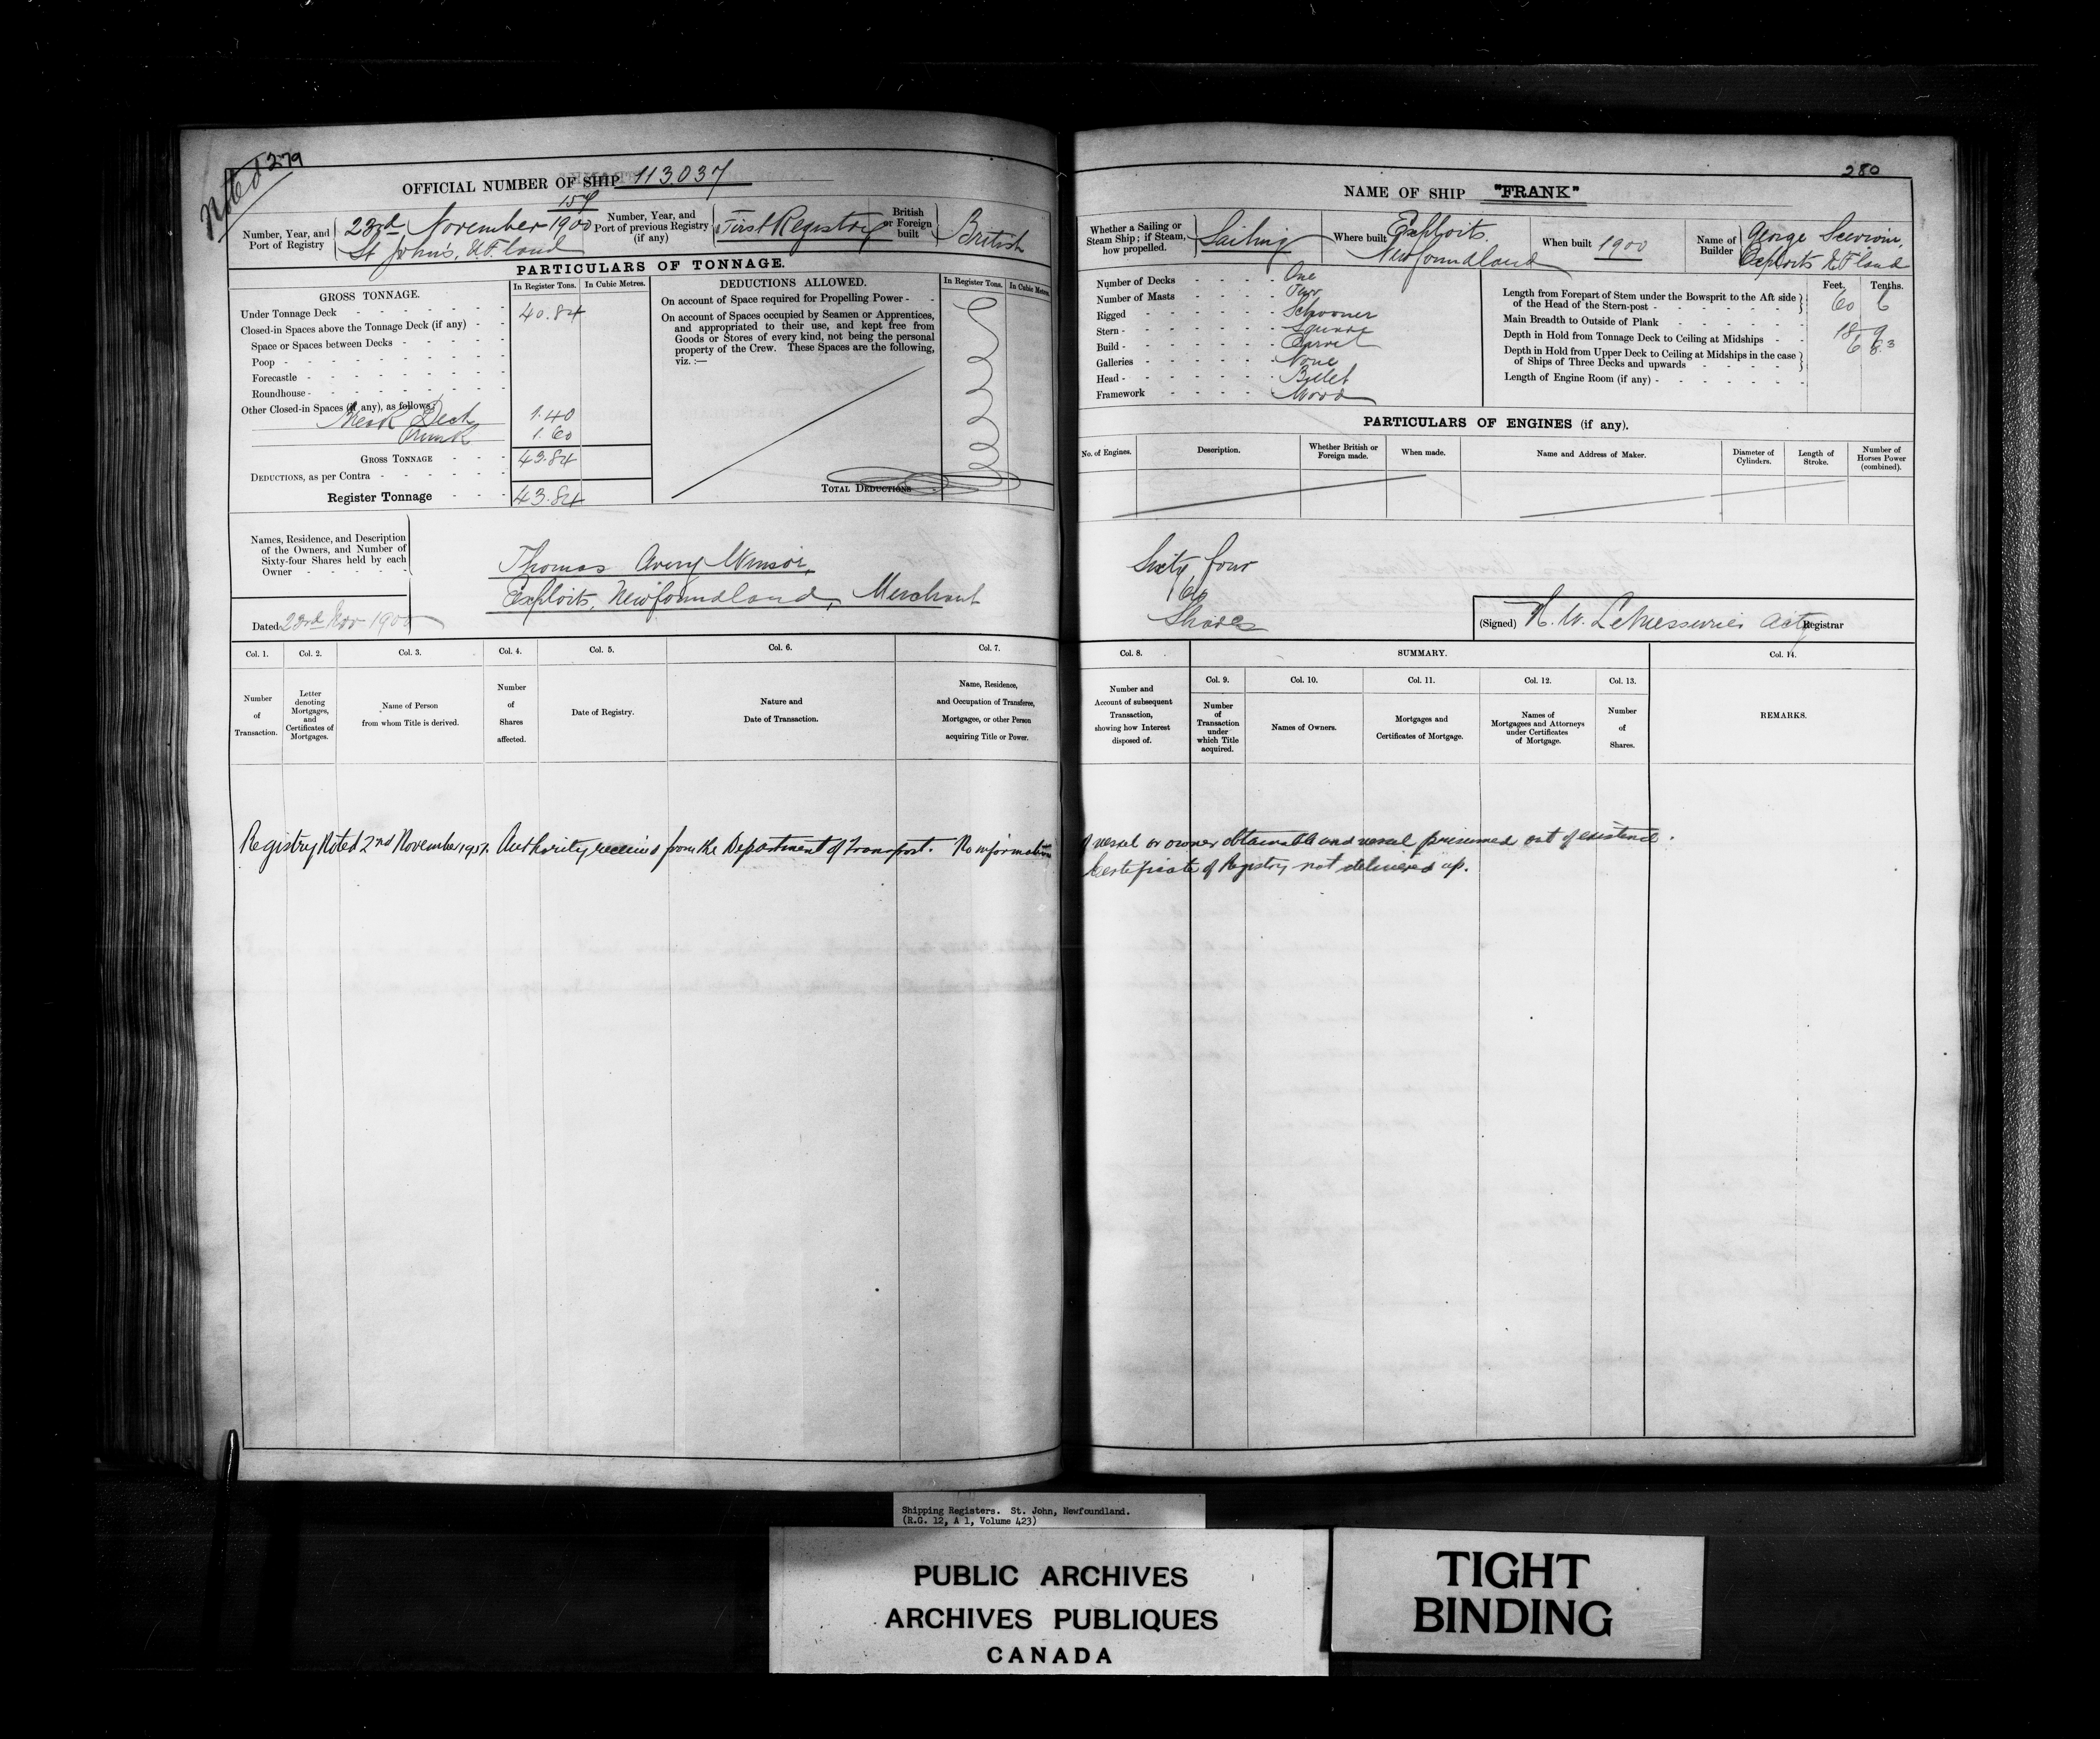 Noted 279
OFFICIAL NUMBER OF SHIP 113.037
157
Number, Year, and Port of Registry
23rd November 1900
St John's, N.F. land
Number, Year, and Port of previous Registry (if any)
First Registry
British or Foreign built
British
PARTICULARS OF TONNAGE.
GROSS TONNAGE.
In Register Tons.
In Cubic Metres.
Under Tonnage Deck 40.84
Closed-in Spaces above the Tonnage Deck (if any)
Space or Spaces between Decks
Poop
Forecastle
Roundhouse
Other Closed-in Spaces (if any), as follows
Break Deck 1.40
Trunk 1.60
GROSS TONNAGE 43.84
DEDUCTIONS, as per Contra
Register Tonnage 43.84
DEDUCTIONS ALLOWED.
In Register Tons.
In Cubic Metres.
On account of Space required for Propelling Power
On account of Spaces occupied by Seamen or Apprentices,
and appropriated to their use, and kept free from
Goods or Stores of every kind, not being the personal
property of the Crew. These Spaces are the following,
viz. :—
TOTAL DEDUCTIONS
Names, Residence, and Description
of the Owners, and Number of
Sixty-four Shares held by each
Owner
Thomas Avery Winsor,
Exploits, Newfoundland, Merchant
Dated 23rd Nov 1900
Col. 1.
Number of Transaction.
Col. 2.
Letter denoting Mortgages, and Certificates of Mortgages.
Col. 3.
Name of Person from whom Title is derived.
Col. 4.
Number of Shares affected.
Col. 5.
Date of Registry.
Col. 6.
Nature and Date of Transaction.
Col. 7.
Name, Residence, and Occupation of Transferee, Mortgagee, or other Person acquiring Title or Power.
280
NAME OF SHIP "FRANK"
Whether a Sailing or Steam Ship; if Steam, how propelled.
Sailing
Where built
Exploits,
Newfoundland
When built 1900
Name of Builder
George
Exploits N.F.land
Number of Decks One
Number of Masts Two
Rigged Schooner
Stern Square
Build Carvel
Galleries None
Head Billet
Framework Wood
Feet. Tenths.
Length from Forepart of Stem under the Bowsprit to the Aft side
of the Head of the Stern-post 60 6
Main Breadth to Outside of Plank 18 9
Depth in Hold from Tonnage Deck to Ceiling at Midships 6 8.3
Depth in Hold from Upper Deck to Ceiling at Midships in the case
of Ships of Three Decks and upwards
Length of Engine Room (if any)
PARTICULARS OF ENGINES (if any).
No. of Engines.
Description.
Whether British or Foreign made.
When made.
Name and Address of Maker.
Diameter of Cylinders.
Length of Stroke.
Number of Horses Power (combined).
Sixty four
Shares
(Signed) H. W. LeMessurier Actg Registrar
Col. 8.
Number and Account of subsequent Transaction, showing how Interest disposed of.
SUMMARY.
Col. 9.
Number of Transaction under which Title acquired.
Col. 10.
Names of Owners.
Col. 11.
Mortgages and Certificates of Mortgage.
Col. 12.
Names of Mortgagees and Attorneys under Certificates of Mortgage.
Col. 13.
Number of Shares.
Col. 14.
REMARKS.
Registry Noted 2nd November Authority received from the Department of Transport. No information of vessel or owner obtainable and vessel presumed out of existence.
Certificate of Registry not delivered up.
Shipping Registers. St. John, Newfoundland.
(R.G. 12, A 1, Volume 423)
PUBLIC ARCHIVES
ARCHIVES PUBLIQUES
CANADA
TIGHT
BINDING